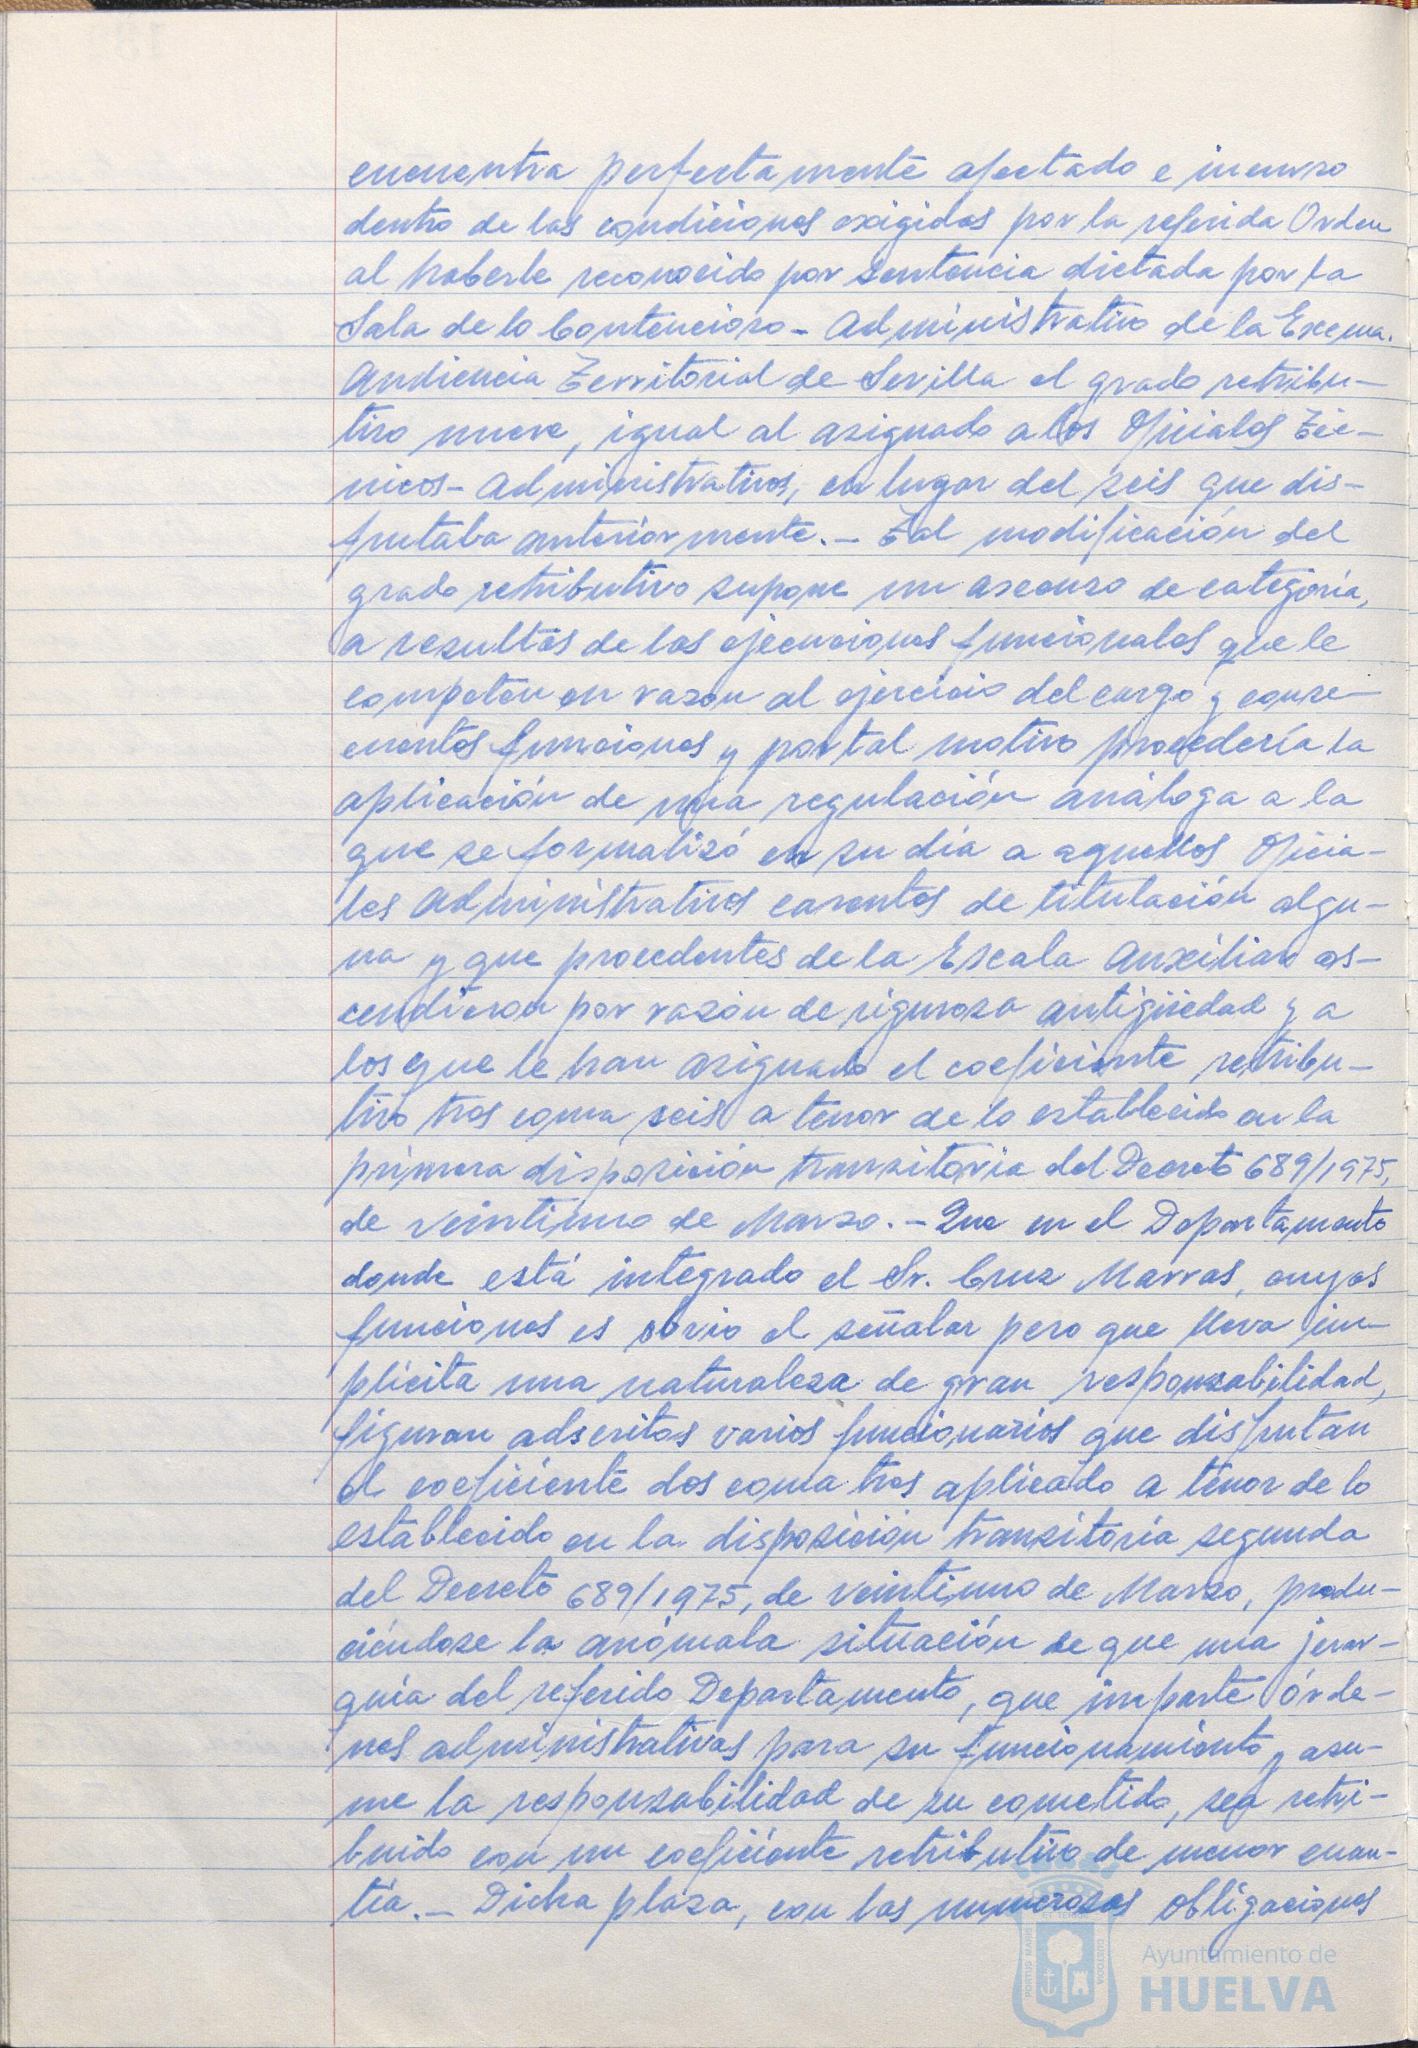 encuentra perfectamente afectado e incurso
dentro de las condiciones exigidas por la referida Orden
al haberle reconocido por sentencia dictada por la
Sala de lo Contencioso-Administrativo de la Excma.
Audiencia Territorial de Sevilla el grado retribu-
tivo nueve, igual al asignado a los Oficiales Téc-
nicos-Administrativos, en lugar del seis que dis-
frutaba anteriormente.- Tal modificación del
grado retributivo supone un ascenso de categoría,
a resultas de las ejecuciones funcionales que le
competen en razon al ejercicio del cargo y conse-
cuentes funciones y por tal motivo procedería la
aplicación de una regulación análoga a la
que se formalizó en su día a aquellos Oficia-
les Administrativos carentes de titulación algu-
na y que procedentes de la Escala Auxiliar as-
cendieron por razón de rigurosa antigüedad y a
los que le han asignado el coeficiente retribu-
tivo tres coma seis a tenor de lo establecido en la
primera disposición transitoria del Decreto 689/1975,
de veintiuno de Marzo.- Que en el Departamento
donde está integrado el Sr. Cruz Marras, cuyas
funciones es obvio el señalar pero que lleva im-
plícita una naturaleza de gran responsabilidad,
figuran adscritos varios funcionarios que disfrutan
el coeficiente dos coma tres aplicado a tenor de lo
establecido en la disposición transitoria segunda
del Decreto 689/1975, de veintiuno de Marzo, produ-
ciéndose la anómala situación de que una jerar-
quía del referido Departamento, que imparte órde-
nes administrativas para su funcionamiento y asu-
me la responsabilidad de su cometido, sea retri-
buido con un coeficiente retributivo de menor cuan-
tía.- Dicha plaza, con las numerosas obligaciones
Ayuntamiento de
HUELVA